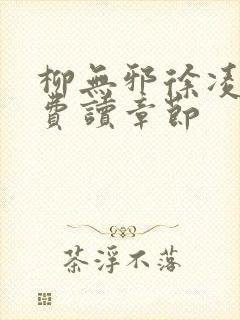 柳無邪徐凌
費讀章節
茶浮不落